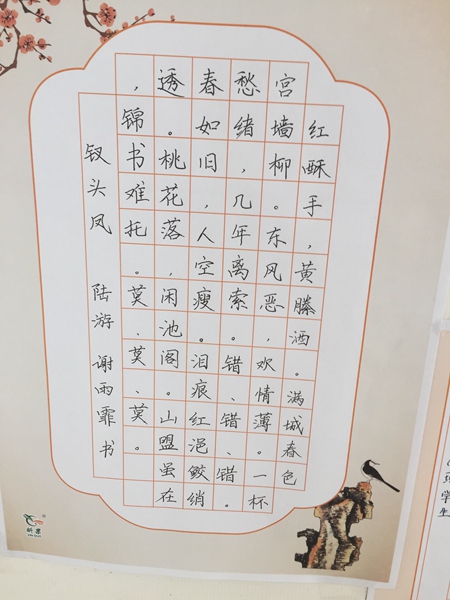 红酥手，黄縢酒。满城春色
宫墙柳。东风恶，欢情薄。一杯
愁绪，几年离索。错、错、错。
春如旧，人空瘦。泪痕红浥鲛绡
透。桃花落，闲池阁。山盟虽在
，锦书难托。莫、莫、莫。
钗头凤 陆游 谢雨霏书